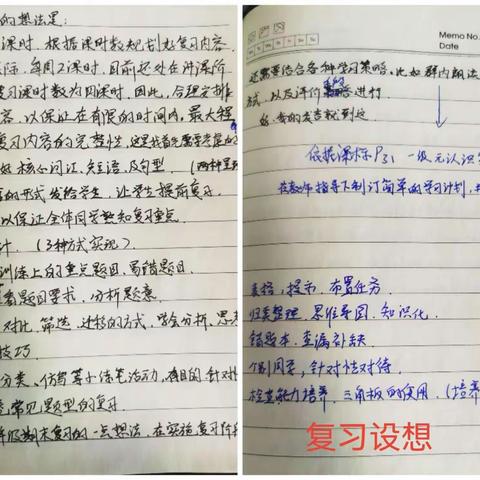 的想法是:
课时,根据课时数规划好复习内容
际,每周2课时,目前还处在冲浪阶
复习课时数为四课时,因此,合理安排
容,以保证在有限的时间内,最大程
复习内容的完整性,这里我首先需要
好核心词汇、短语、及句型
的形式发给学生,让学生提前复习
以保证全体同学熟知复习重点
计 (3种方式实现)
训练上的重点题目,易错题目
看题目要求,分析题意
对比、筛选、迁移的方式,学会分析、思
技巧
分类、仿写等小练笔活动,有目的、针对性
常见题型的复习
期末复习的一点想法,在实施复习
Memo No.
Date
还需要结合各种学习策略,比如群内朗读
方式,以及评价 进行
好,我的发言就到这
依据课标P31 一级元认识
在教师指导下制订简单的学习计划,
表格,提示,布置任务
归类整理,思维导图,知识化
错题本,查漏补缺
个别同学,针对性对待
检查能力培养,三角板的使用 (培养
复习设想